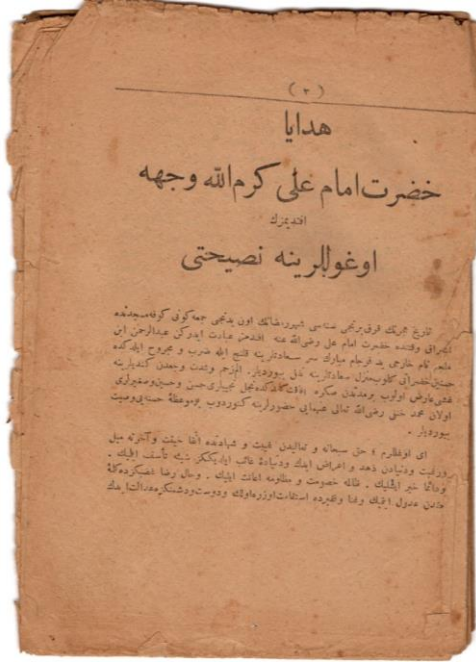 ( ٢ )
هدايا
حضرت امام علی كرم الله وجهه
افنديمزك
اوغوللرينه نصيحتی
تاريخ هجرتك قرق برنجی سنه‌سی شهر رمضانك اون يدنجی جمعه كونی كوفه مسجدنده
وقتنده حضرت امام علی رضی الله عنه افندمز عبادت ايدركن عبدالرحمن ابن
ملجم نام خارجی بد فرجام مبارك سر سعادتلرينه قليج ايله ضرب و مجروح ايلدكده
سعادتلرينه نقل بيورديلر. الم زخم و شدت وجعدن كنديلرينه
غشی عارض اولوب برمدتدن صكره حسن و حسين و صغيرلری
اولان محمد حنفی رضی الله تعالی عنهمايی حضورلرينه كتوردوب بو موعظهٔ حسنه‌يی وصيت
بيورديلر.
ای اوغللرم ؛ حق سبحانه و تعالیدن غيبت و شهادتده اتقا خيفت و آخرته ميل
و رغبت و دنيادن زهد و اعراض ايدك و دنياده غائب ايلديككز شيئه تأسف ايتميك.
و دائما خير ايشليك. ظالمه خصومت و مظلومه اعانت ايليك. و حال رضا
عدول ايتميك و غنا و فقرده استقامت اوزره اولك و دوست و دشمنكزه عدالت ايدك